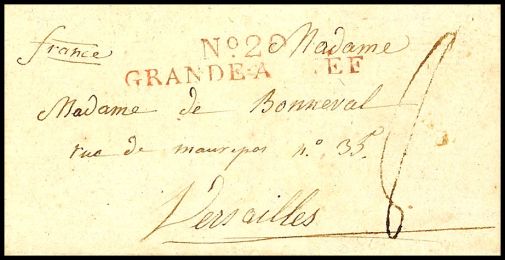 france
No. 20 Madame
GRANDE-A EE
Madame de Bonneval
rue de maurepas n.o 35.
Versailles
8